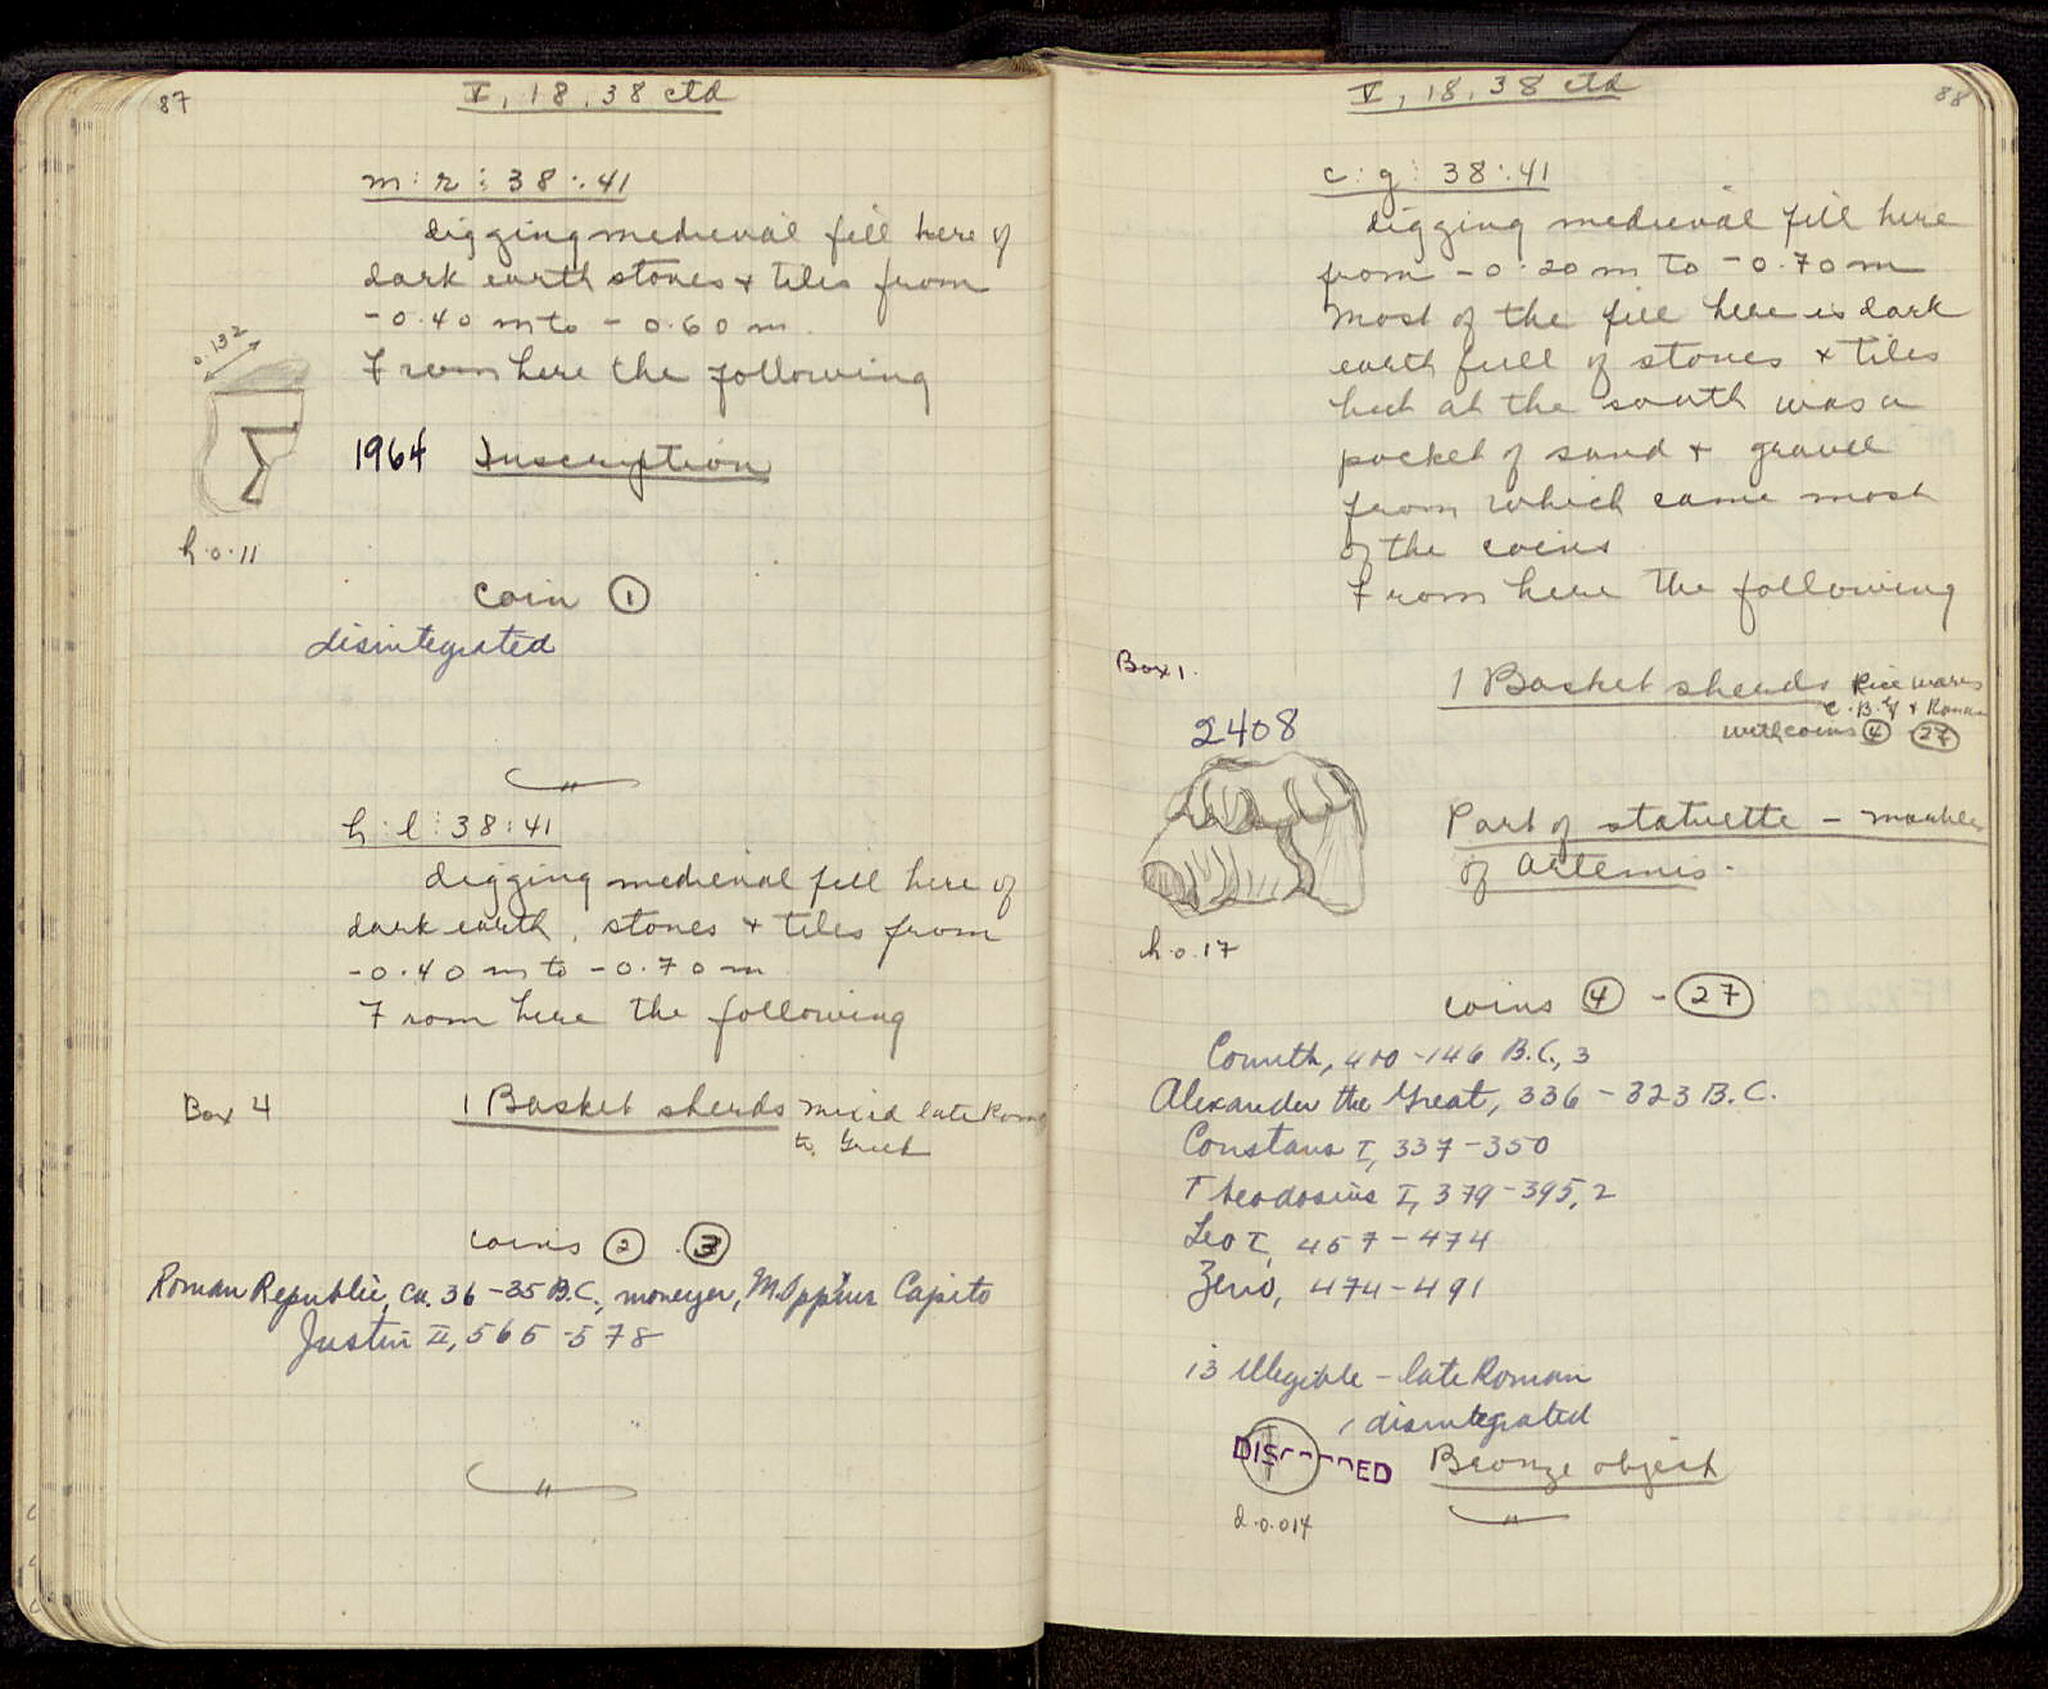 87
V, 18, 38 ctd
m : r : 38 : 41
digging medieval fill here of
dark earth stones + tiles from
-0.40 m to -0.60 m.
From here the following
0.132
1964 Inscription
h.0.11
coin 1
disintegrated
"
h : l : 38 : 41
digging medieval fill here of
dark earth, stones + tiles from
-0.40 m to -0.70 m
From here the following
Box 4
1 Basket sherds mixed late Roman
to Greek
coins 2 . 3
Roman Republic, ca. 36-35 B.C., moneyer, M. Oppius Capito
Justin II, 565-578
"
V, 18, 38 ctd
88
c : g : 38 : 41
digging medieval fill here
from -0.20 m to -0.70 m
Most of the fill here is dark
earth full of stones + tiles
but at the south was a
pocket of sand + gravel
from which came most
of the coins
From here the following
Box 1.
1 Basket sherds wares
+ Roman
with coins 4 27
2408
Part of statuette - marble
of Artemis.
h.0.17
coins 4 - 27
Corinth, 400-146 B.C., 3
Alexander the Great, 336-323 B.C.
Constans I, 337-350
Theodosius I, 379-395, 2
Leo I, 457-474
Zeno, 474-491
13 illegible - late Roman
1 disintegrated
DISCARDED
Bronze object
d.0.014
"